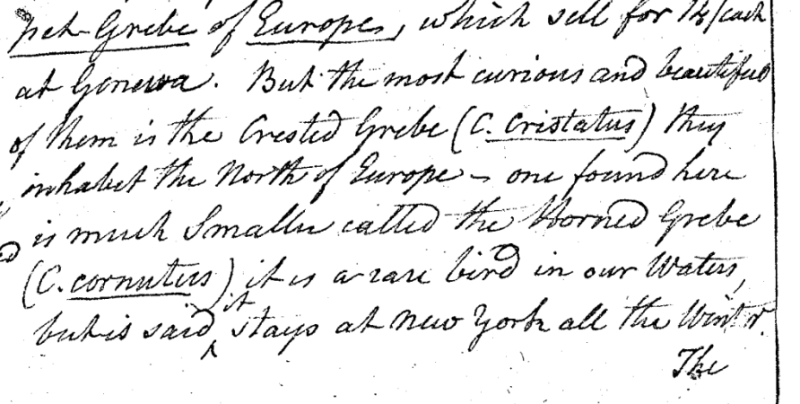 pet-Grebe of Europe, which sell for 14/each
at Geneva. But the most curious and beautiful
of them is the Crested Grebe (C. Cristatus) they
inhabet the North of Europe – one found here
is much Smaller called the Horned Grebe
(C. cornutus) it is a rare bird in our Waters,
but is said ^it stays at New York all the Wint'r.
The